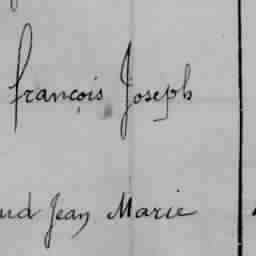 françois Joseph
ud Jean Marie